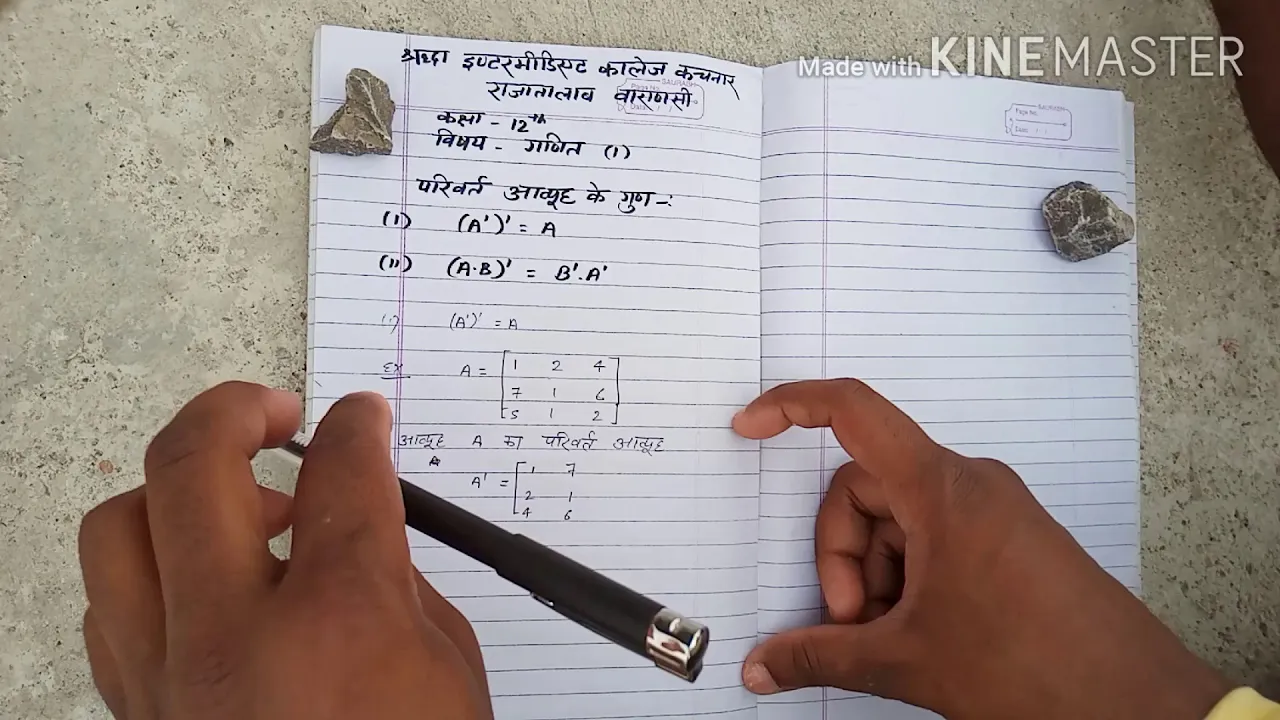 Made with KINEMASTER
श्रद्धा इण्टरमीडिएट कालेज कचनार
राजातालाब वाराणसी
कक्षा - 12th
विषय - गणित (1)
परिवर्त आव्यूह के गुण -:
(i) (A')' = A
(ii) (A·B)' = B'.A'
(i) (A')' = A
Ex A = [ 1 2 4
7 1 6
5 1 2 ]
आव्यूह A का परिवर्त आव्यूह
A' = [ 1 7
2 1
4 6
SAURABH
Page No.
Date